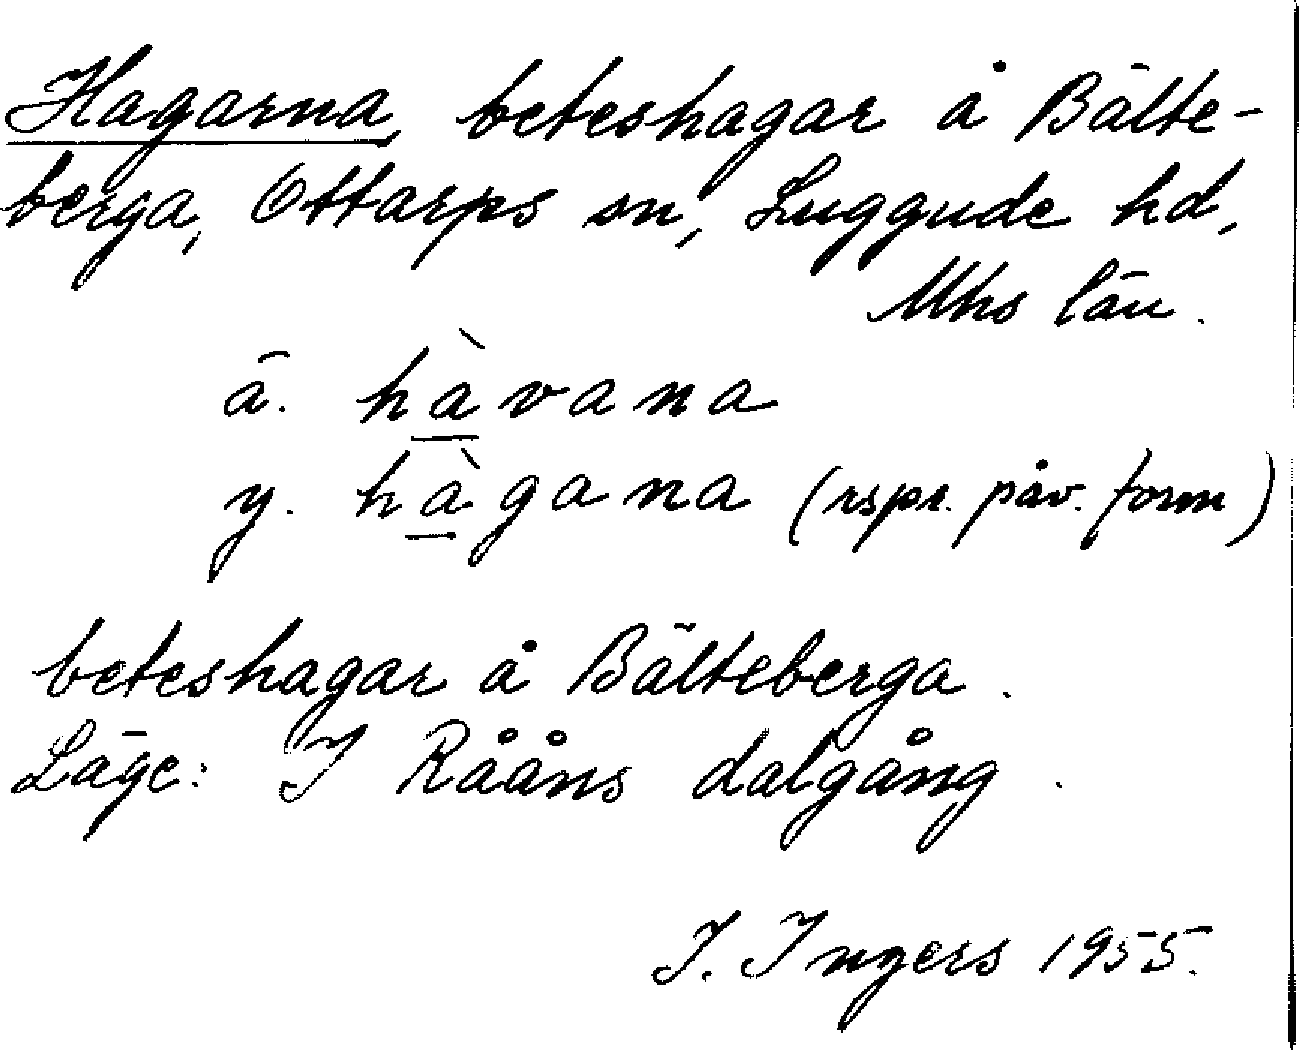 Hagarna, beteshagar å Bälte-
berga, Ottarps sn, Luggude hd,
Mhs län.
ä. hàvana
y. hàgana (rspr. påv. form)
beteshagar å Bälteberga.
Läge: I Rååns dalgång.
I. Ingers 1955.